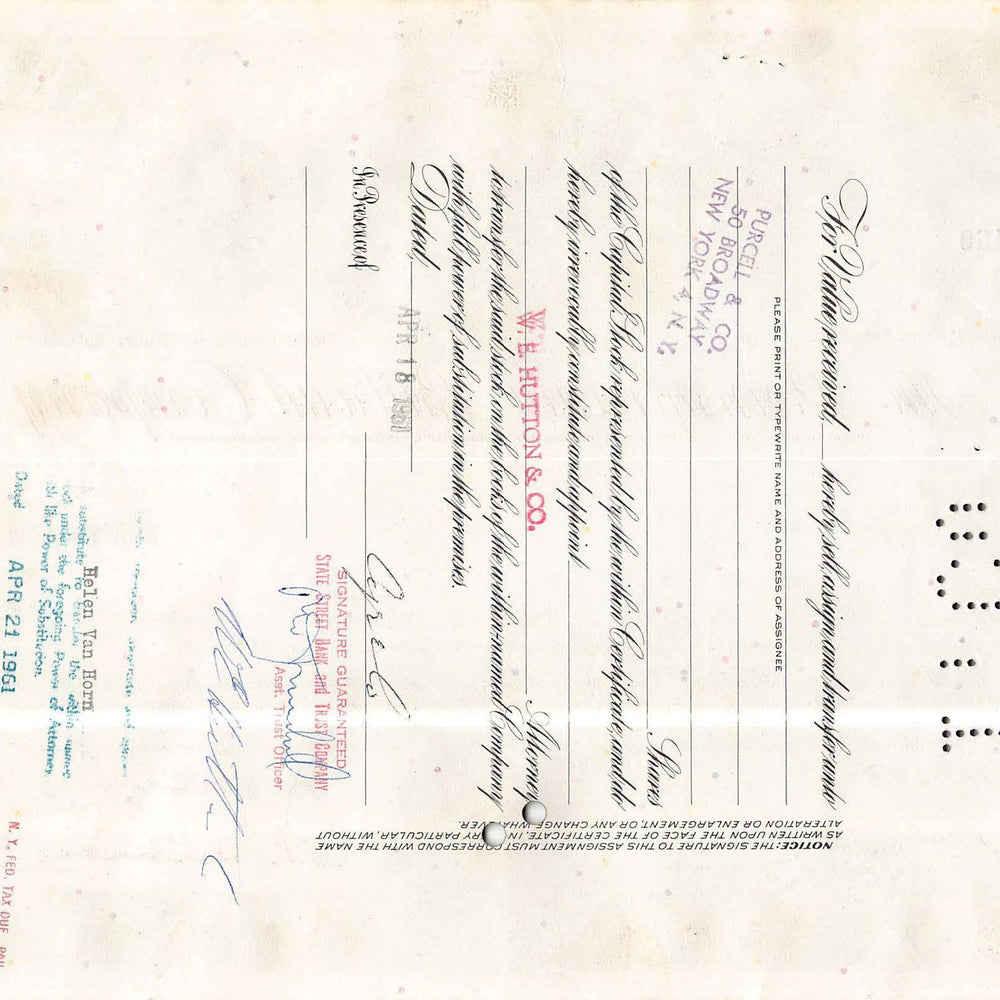 For Value received, hereby sell, assign, and transfer unto
PLEASE PRINT OR TYPEWRITE NAME AND ADDRESS OF ASSIGNEE
PURCELL & CO.
50 BROADWAY
NEW YORK 4, N. Y.
Shares
of the Capital Stock represented by the within Certificate, and do
hereby irrevocably constitute and appoint
W. E. HUTTON & CO.
Attorney
to transfer the said stock on the books of the within-named Company
with full power of substitution in the premises.
Dated, APR 18 1961
In Presence of
SIGNATURE GUARANTEED
STATE STREET BANK and TRUST COMPANY
Asst. Trust Officer
NOTICE: THE SIGNATURE TO THIS ASSIGNMENT MUST CORRESPOND WITH THE NAME
AS WRITTEN UPON THE FACE OF THE CERTIFICATE, IN PARTICULAR, WITHOUT
ALTERATION OR ENLARGEMENT, OR ANY CHANGE WHATEVER.
Helen Van Horn
substitute to transfer the within named
under the foregoing Power of Attorney,
like Power of Substitution.
Dated APR 21 1961
N. Y. FED. TAX DUE